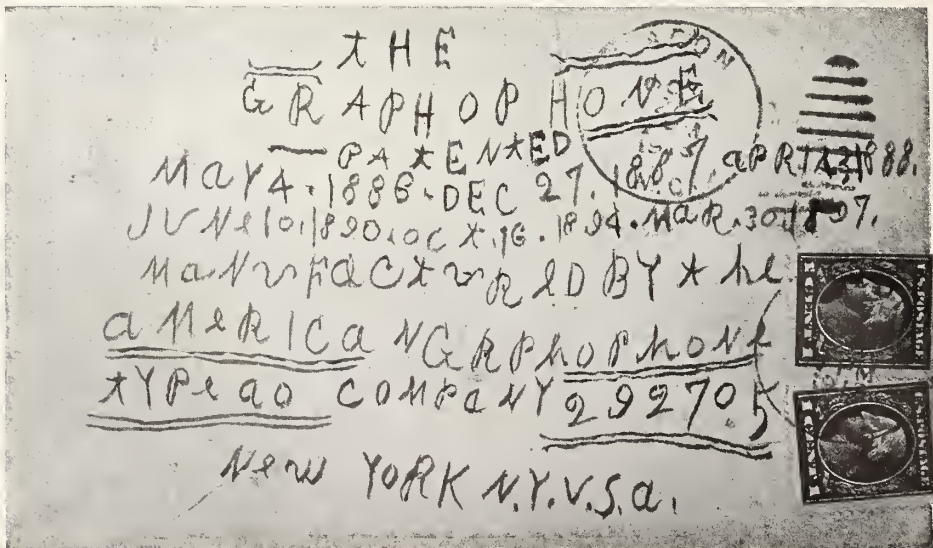 tHE
GRAPHOPHONE
PAtENtED
MaY4.1886.DEC 27.1887.aPRIL31888.
JUNe10.1890.OCt.16.1894.MaR.30.1897.
MaNuFaCtuReDBYthe
aMeRICaNGRPhOPhONe
tYPeao COMPaNY 292705
New YORK N.Y.V.S.a.